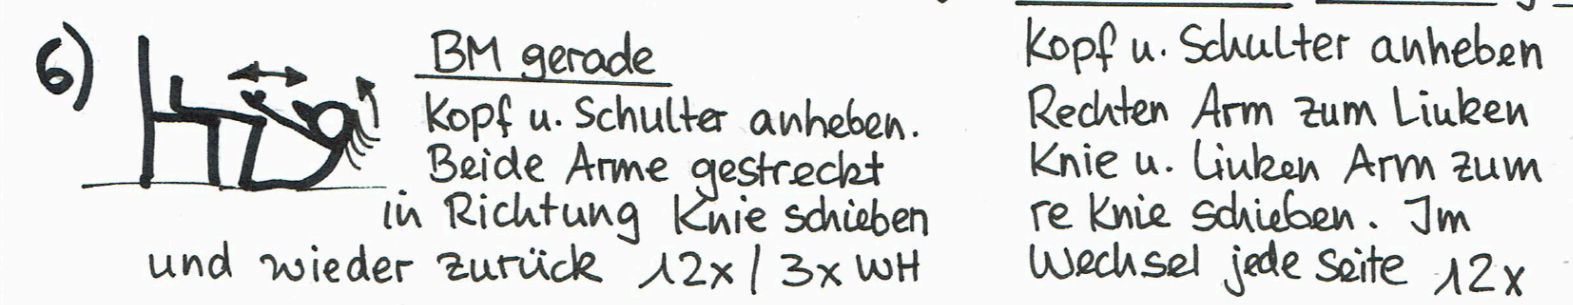 6)
BM gerade
Kopf u. Schulter anheben.
Beide Arme gestreckt
in Richtung Knie schieben
und wieder zurück 12x / 3x WH
Kopf u. Schulter anheben
Rechten Arm zum Linken
Knie u. linken Arm zum
re Knie schieben. Im
Wechsel jede Seite 12x